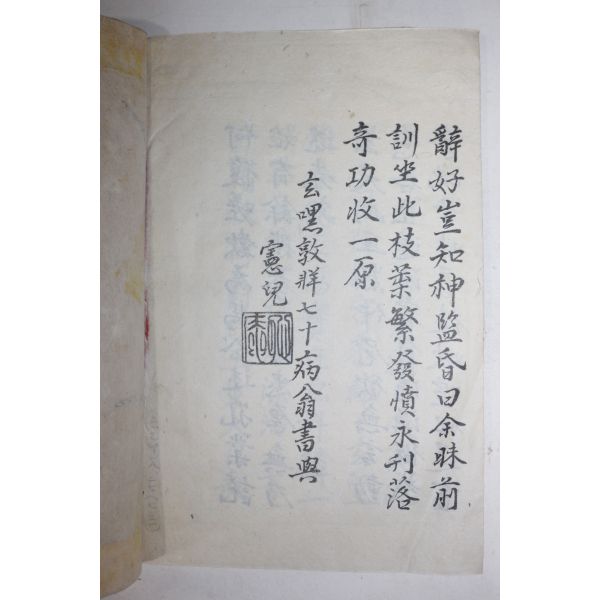 辭好豈知神監昏曰余昧前
訓坐此枝葉繁發憤永刊落
奇功收一原
玄嘿敦牂七十病翁書與
憲兒